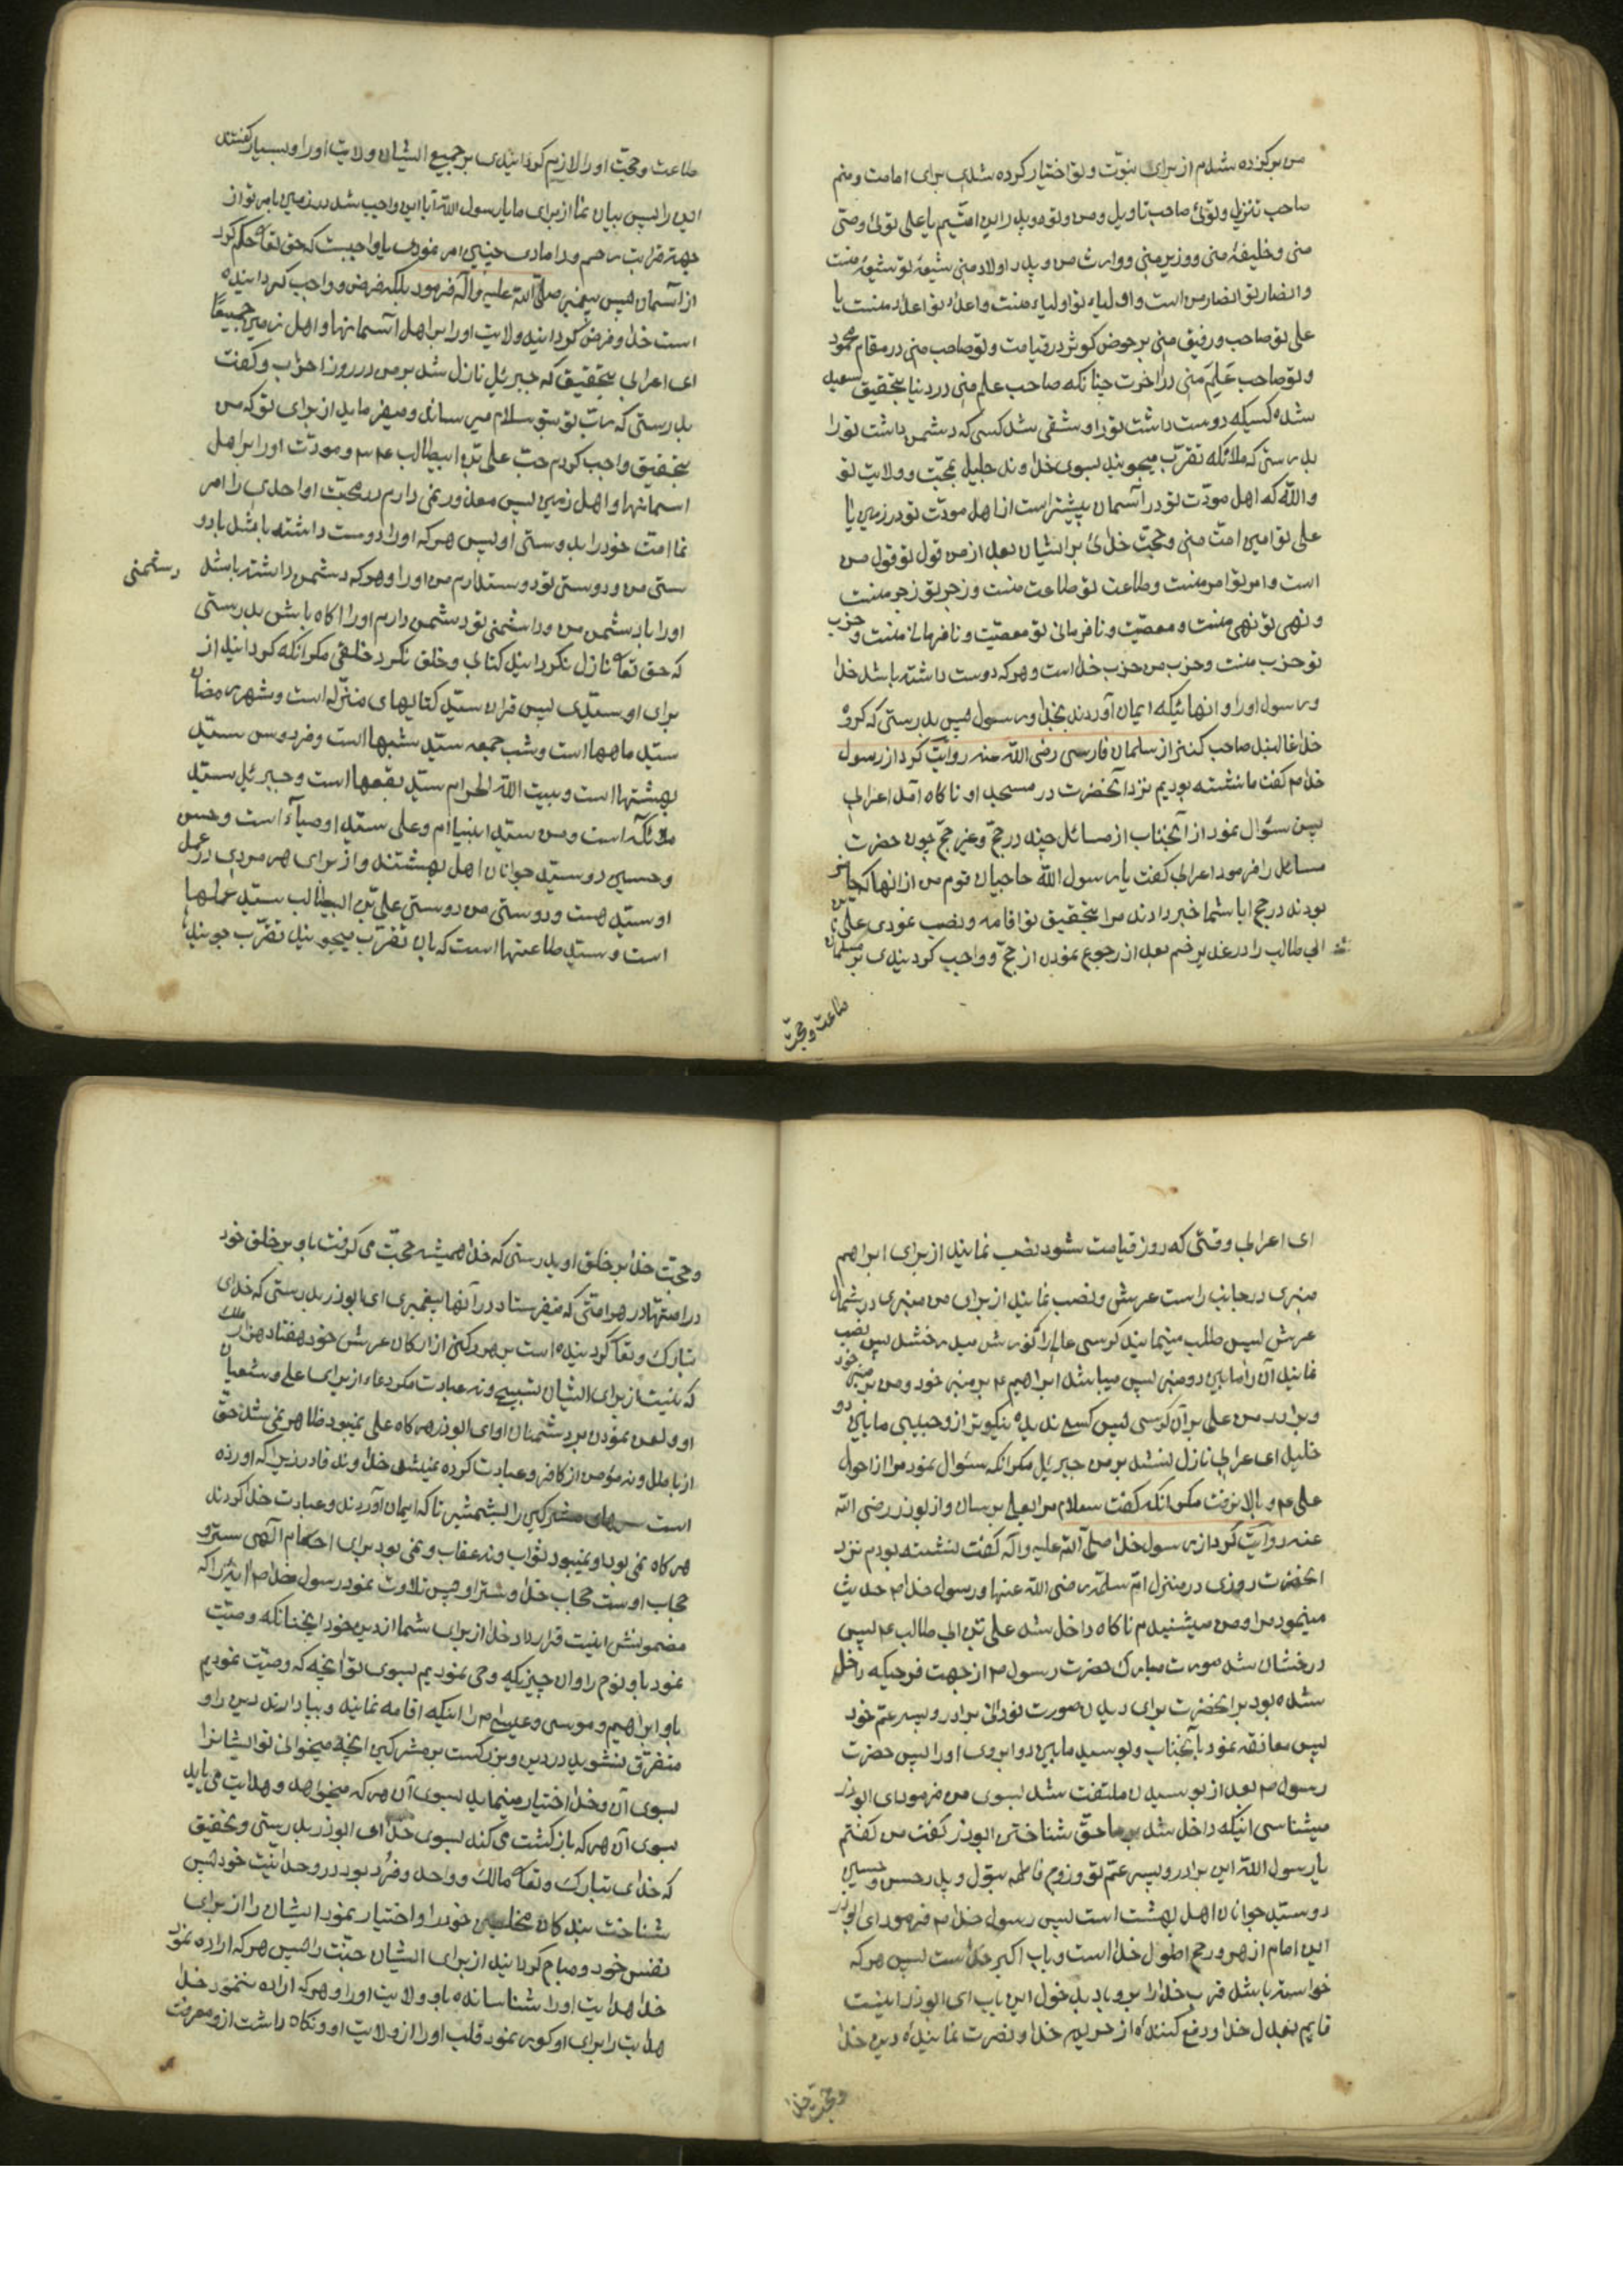 من برگزیده شدم از برای نبوّت و تو اختیار کرده شدی برای امامت و منم
صاحب تنزیل و توئی صاحب تاویل و من و تو دو پدر این امّتیم یا علی توئی وصی
منی و خلیفهٔ منی و وزیر منی و وارث من و پدر اولاد منی شیعهٔ تو شیعهٔ منست
و انصار تو انصار من است و اولیاء تو اولیاء منست و اعداء تو اعداء منست یا
علی تو صاحب و رفیق منی بر حوض کوثر در قیامت و تو صاحب منی در مقام محمود
و تو صاحب عَلَم منی در آخرت چنانکه صاحب علم منی در دنیا بتحقیق سعید
شده کسیکه دوست داشت تو را و شقی شد کسی که دشمن داشت تو را
بدرستی که ملائکه تقرّب میجویند بسوی خداوند جلیل بمحبّت و ولایت تو
والله که اهل مودّت تو در آسمان بیشتر است از اهل مودّت تو در زمین یا
علی تو امین امّت منی و حجّت خدائی بر ایشان بعد از من قول تو قول من
است و امر تو امر منست و طاعت تو طاعت منست و زجر تو زجر منست
و نهی تو نهی منست و معصیت و نافرمانی تو معصیّت و نافرمانی منست و حزب
تو حزب منست و حزب من حزب خدا است و هر که دوست داشته باشد خدا
و رسول او را و انهائیکه ایمان آوردند بخدا و رسول پس بدرستی که گروه
خدا غالبند صاحب کنز از سلمان فارسی رضی الله عنه روایت کرد از رسول
خدا م گفت ما نشسته بودیم نزد آنحضرت در مسجد او ناکاه آمد اعرابی
پس سئوال نمود از آنجناب از مسائل چند در حجّ و غیر حجّ چون حضرت
مسائل را فرمود اعرابی گفت یا رسول الله حاجیان قوم من از انها که حاضر
بودند در حج ابا شما خبر دادند مرا بتحقیق تو اقامه و نصب نمودی علی بن
ابی طالب را در غدیر خم بعد از رجوع نمودن از حجّ و واجب گردنیدی بر مسلمانان
طاعت و محبّت
طاعت و محبّت او را لازم گردانیدی بر جمیع ایشان ولایت او را و بسیار گفتند
این را پس بیان نما از برای ما یا رسول الله آیا این واجب شد در زمین بامر تو از
جهة قرابت رحم و دامادی چنین امر نمودی یا واجبست که حق تعا حکم کرد
از آسمان پس پیغمبر صلی الله علیه و آله فرمود بلکه فرض و واجب گردانیده
است خدا و فرض گردانیده ولایت او را بر اهل آسمانها و اهل زمین جمیعًا
ای اعرابی بتحقیق که جبرئیل نازل شد بر من در روز احزاب و گفت
بدرستی که ربّ تو بتو سلام میرساند و میفرماید از برای تو که من
بتحقیق واجب کردم حبّ علی بن ابیطالب ع م و مودّت او را بر اهل
اسمانها و اهل زمین پس معذور نمی دارم در محبّت او احدی را امر
نما امّت خود را بدوستی او پس هر که او را دوست داشته باشد بدو
ستی من و دوستی تو دوست دارم من او را و هر که دشمن داشته باشد دشمنی
او را بدشمنی من و دشمنی تو دشمن دارم او را اکاه باش بدرستی
که حق تعا نازل نگردانید کتابی و خلق نکرد خلقی مگر انکه گردانید از
برای او سیّدی پس قران سیّد کتابهای منزله است و شهر رمضان
سیّد ماهها است و شب جمعه سیّد شبها است و فردوس سیّد
بهشتها است و بیت الله الحرام سیّد بقعها است و جبرئیل سیّد
ملائکه است و من سیّد انبیاام و علی سیّد اوصیاء است و حسن
و حسین دو سیّد جوانان اهل بهشتند و از برای هر مردی در عمل
او سیّد هست و دوستی من دوستی علی بن ابیطالب سیّد عملها
است و سیّد طاعتها است که بان تقرّب میجویند تقرّب جویند
ای اعرابی وقتی که روز قیامت شود نصب نمایند از برای ابراهیم
منبری در جانب راست عرش و نصب نمایند از برای من منبری در شمال
عرش پس طلب مینمایند کرسی عالی را که نورش میدرخشد پس نصب
نمایند آن را مابین دو منبر پس میباشد ابراهیم ع بر منبر خود و من بر منبر خود
و برادر من علی بر آن کرسی پس کسی ندیده نیکوتر از حبیبی مابین دو
خلیل ای اعرابی نازل نشد بر من جبرئیل مگر انکه سئوال نمود مرا از احوال
علی ع و بالا نرفت مگر انکه گفت سلام مرا بعلی برسان و از ابوذر رضی الله
عنه روایت کرد از رسول خدا صلی الله علیه و آله گفت نشسته بودم نزد
انحضرت روزی در منزل امّ سلمة رضی الله عنها و رسول خدا م حدیث
مینمود مرا و من میشنیدم ناکاه داخل شد علی بن ابی طالب ع پس
درخشان شد صورت مبارک حضرت رسول م از جهت فرحیکه داخل
شده بود بر انحضرت برای دیدن صورت نورانی برادر و پسر عم خود
پس معانقه نمود بآنجناب و بوسید مابین دو ابروی او را پس حضرت
رسول م بعد از بوسیدن ملتفت شد بسوی من فرمود ای ابوذر
میشناسی اینکه داخل شد بر ما حقّ شناختن ابوذر گفت من گفتم
یا رسول الله این برادر و پسر عمّ تو و زوج فاطمه بتول و پدر حسن و حسین
دو سیّد جوانان اهل بهشت است پس رسول خدا م فرمود ای ابوذر
این امام ازهر و رمح اطول خدا است و باب اکبر خدا است پس هر که
خواسته باشد قرب خدا را بر و باید بدخول این باب ای ابوذر اینست
قایم بعدل خدا و دفع کنندهٔ از حریم خدا و نصرت نمایندهٔ دین خدا
و حجّت خدا
و حجّت خدا بر خلق او بدرستی که خدا همیشه حجّت می گرفت باو بر خلق خود
در امّتها در هر امّتی که میفرستاد در آنها پیغمبری ای ابوذر بدرستی که خدای
تبارک و تعا گردنیده است بر هر رکنی از ارکان عرش خود هفتاد هزار ملک
که نیست از برای ایشان تسبیح و نه عبادت مگر دعاء از برای علی و شیعیان
او و لعن نمودن بر دشمنان او ای ابوذر هر کاه علی نمیبود ظاهر نمی شد حق
از باطل و نه مؤمن از کافر و عبادت کرده نمیشد خداوند قادر زیرا که او زده
است سرهای مشرکین را بشمشیر تا که ایمان آوردند و عبادت خدا کردند
هر کاه نمی بود او نمیبود ثواب و نه عقاب و نمی بود برای احکام الهی ستر و
حجاب اوست حجاب خدا و ستر او پس تلاوت نمود رسول خدا م ایة را که
مضمونش اینست قرار داد خدا از برای شما از دین خود انچنانکه وصیّت
نمود باو نوح را و ان چیزیکه وحی نمودیم بسوی تو انچه که وصیّت نمودیم
باو ابراهیم و موسی و عیسی م را اینکه اقامه نمایند و بپا دارند دین را و
متفرق نشوید در دین و بزرگست بر مشرکین انچه میخوانی تو ایشانرا
بسوی آن و خدا اختیار مینماید بسوی آن هر که میخواهد و هدایت می یابد
بسوی آن هر که بازگشت می کند بسوی خدا ای ابوذر بدرستی و بتحقیق
که خدای تبارک و تعا مالک و واحد و فرد بود در وحدانیت خود پس
شناخت بندکان مخلصین خود را و اختیار نمود ایشان را از برای
نفس خود و مباح گردانید از برای ایشان جنّت را پس هر که اراده نمود
خدا هدایت او را شناسانده باو ولایت او را و هر که اراده ننمود خدا
هدایت را برای او کور نمود قلب او را از ولایت او و نگاه داشت از و معرفت